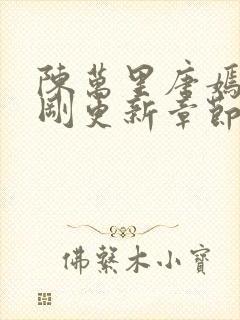 陳萬里唐嫣
剛更新章節
佛繫木小寶